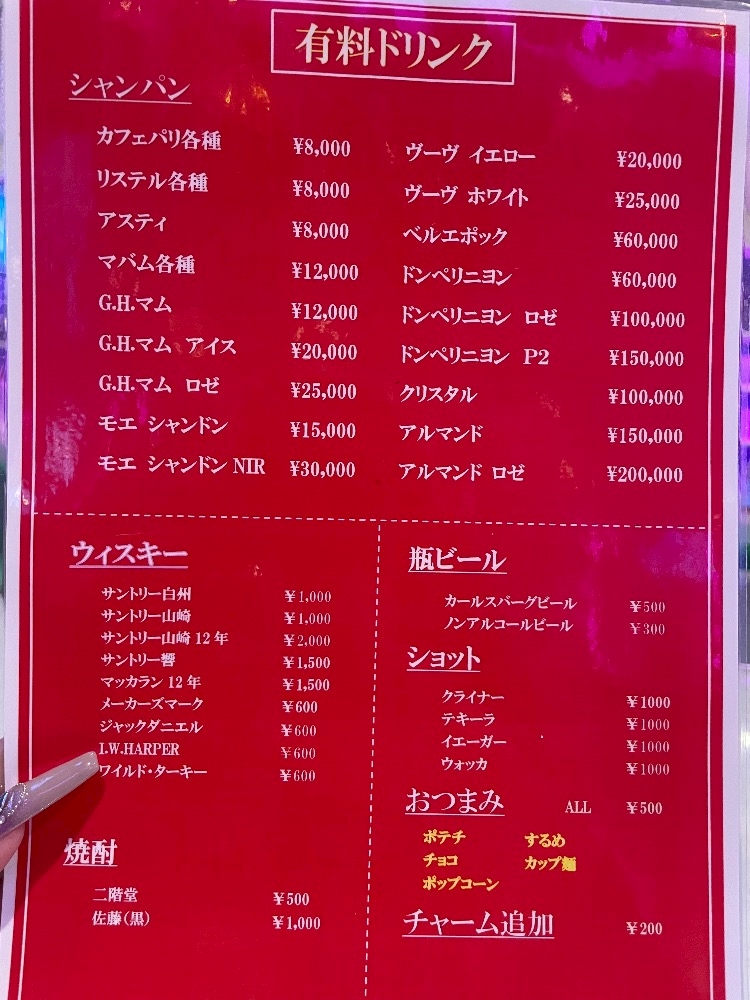 有料ドリンク
シャンパン
カフェパリ各種 ¥8,000
リステル各種 ¥8,000
アスティ ¥8,000
マバム各種 ¥12,000
G.H.マム ¥12,000
G.H.マム アイス ¥20,000
G.H.マム ロゼ ¥25,000
モエ シャンドン ¥15,000
モエ シャンドン NIR ¥30,000
ヴーヴ イエロー ¥20,000
ヴーヴ ホワイト ¥25,000
ベルエポック ¥60,000
ドンペリニヨン ¥60,000
ドンペリニヨン ロゼ ¥100,000
ドンペリニヨン P2 ¥150,000
クリスタル ¥100,000
アルマンド ¥150,000
アルマンド ロゼ ¥200,000
ウィスキー
サントリー白州 ¥1,000
サントリー山崎 ¥1,000
サントリー山崎 12年 ¥2,000
サントリー響 ¥1,500
マッカラン 12年 ¥1,500
メーカーズマーク ¥600
ジャックダニエル ¥600
I.W.HARPER ¥600
ワイルド・ターキー ¥600
焼酎
二階堂 ¥500
佐藤(黒) ¥1,000
瓶ビール
カールスバーグビール ¥500
ノンアルコールビール ¥300
ショット
クライナー ¥1000
テキーラ ¥1000
イエーガー ¥1000
ウォッカ ¥1000
おつまみ ALL ¥500
ポテチ するめ
チョコ カップ麺
ポップコーン
チャーム追加 ¥200